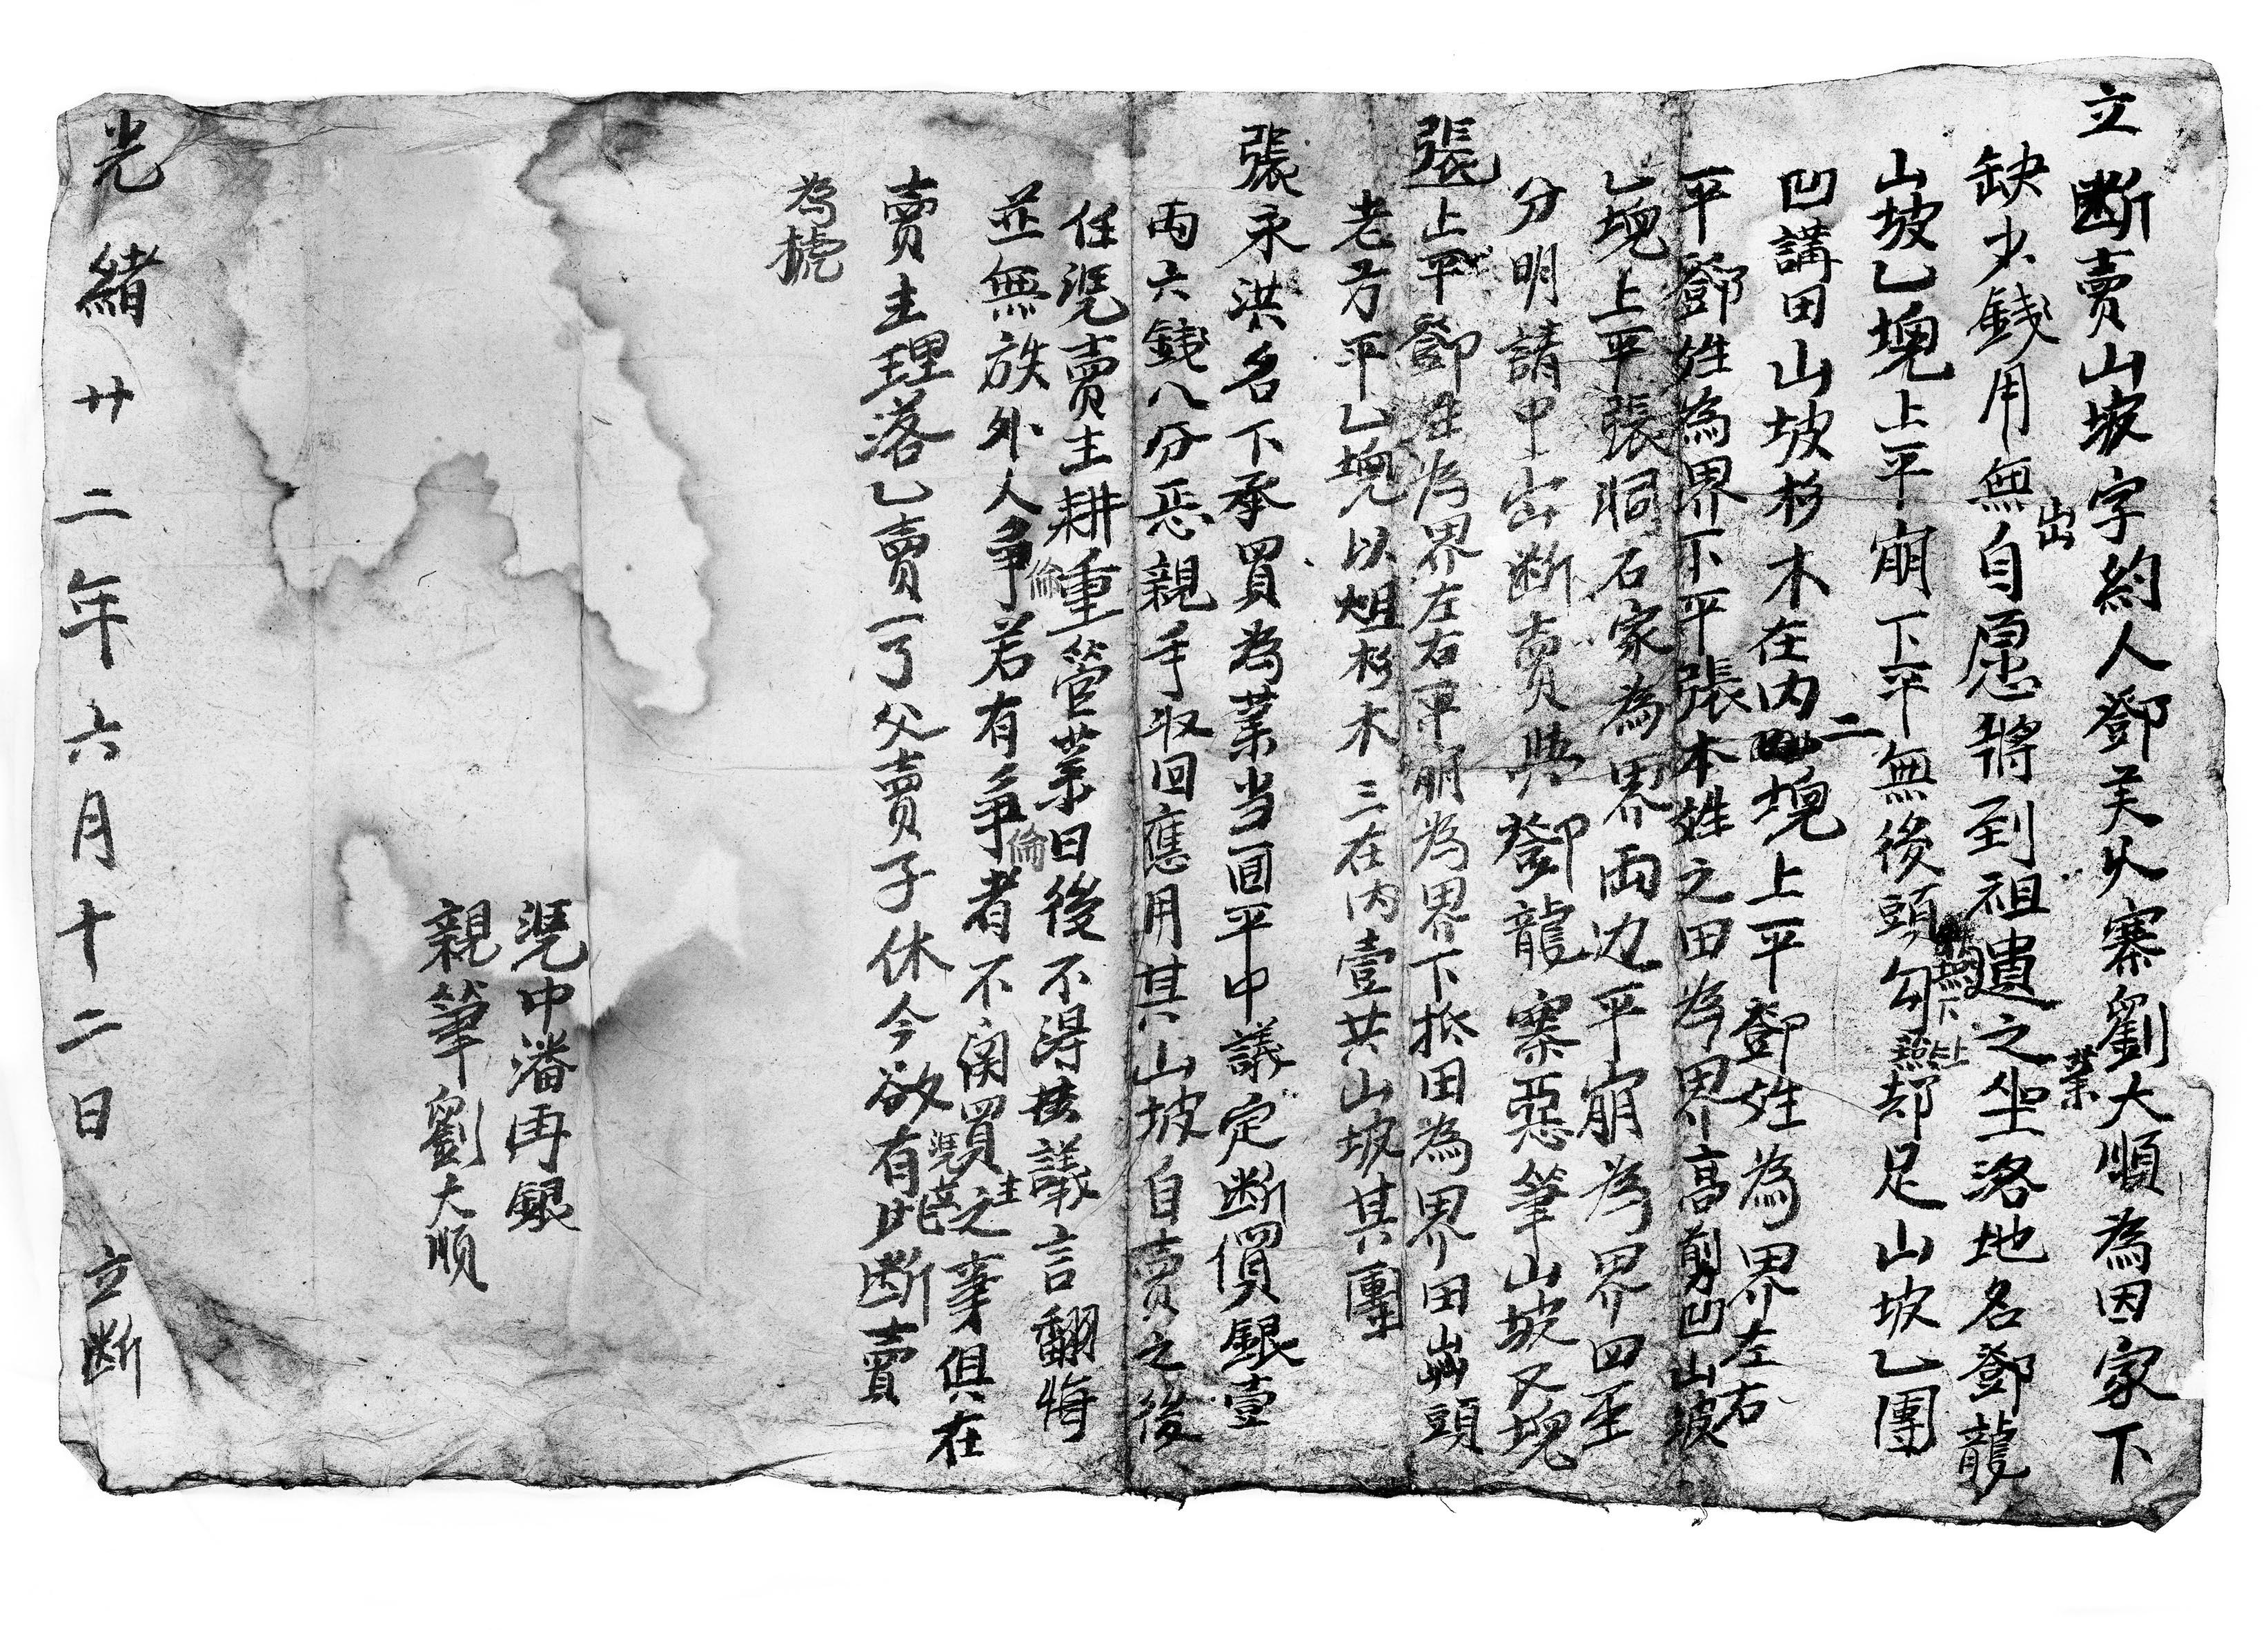 立断賣山坡字約人鄧美火寨劉大順為因家下
缺少錢用無出自愿將到祖遺之業坐洛地名鄧龍
山坡乙塊上平崩下平無後頭勾却足山坡乙團
凹講田山坡杉木在内二塊上平鄧姓為界左右
平鄧姓為界下平張本姓之田為界高剪凹山坡
乙塊上平張洞石家為界兩边平崩為界四至
分明請中出断賣與鄧龍寨惡筆山坡又塊
張上平鄧姓為界左右平崩為界下抵田為界田崩頭
老芳平乙塊以俎杉木三在内壹共山坡其團
張永洪名下承買為業当面平中議定断價銀壹
兩六錢八分惡親手收回應用其山坡自賣之後
任凴賣主耕重管業日後不得棱議言翻悔
並無族外人争論若有争論者不関買主之事俱在
賣主理落乙賣一了父賣子休今欲有凴立此断賣
為梡
凴中潘再銀
親筆劉大順
光緒廿二年六月十二日立断